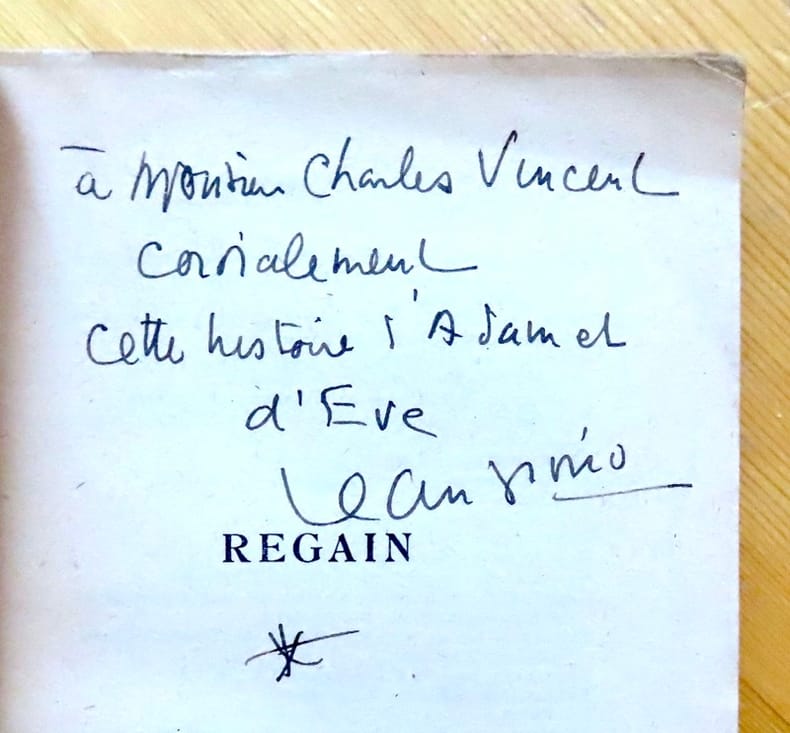 à Monsieur Charles Vincent
cordialement
cette histoire d'Adam et
d'Eve
Jean Giono
REGAIN